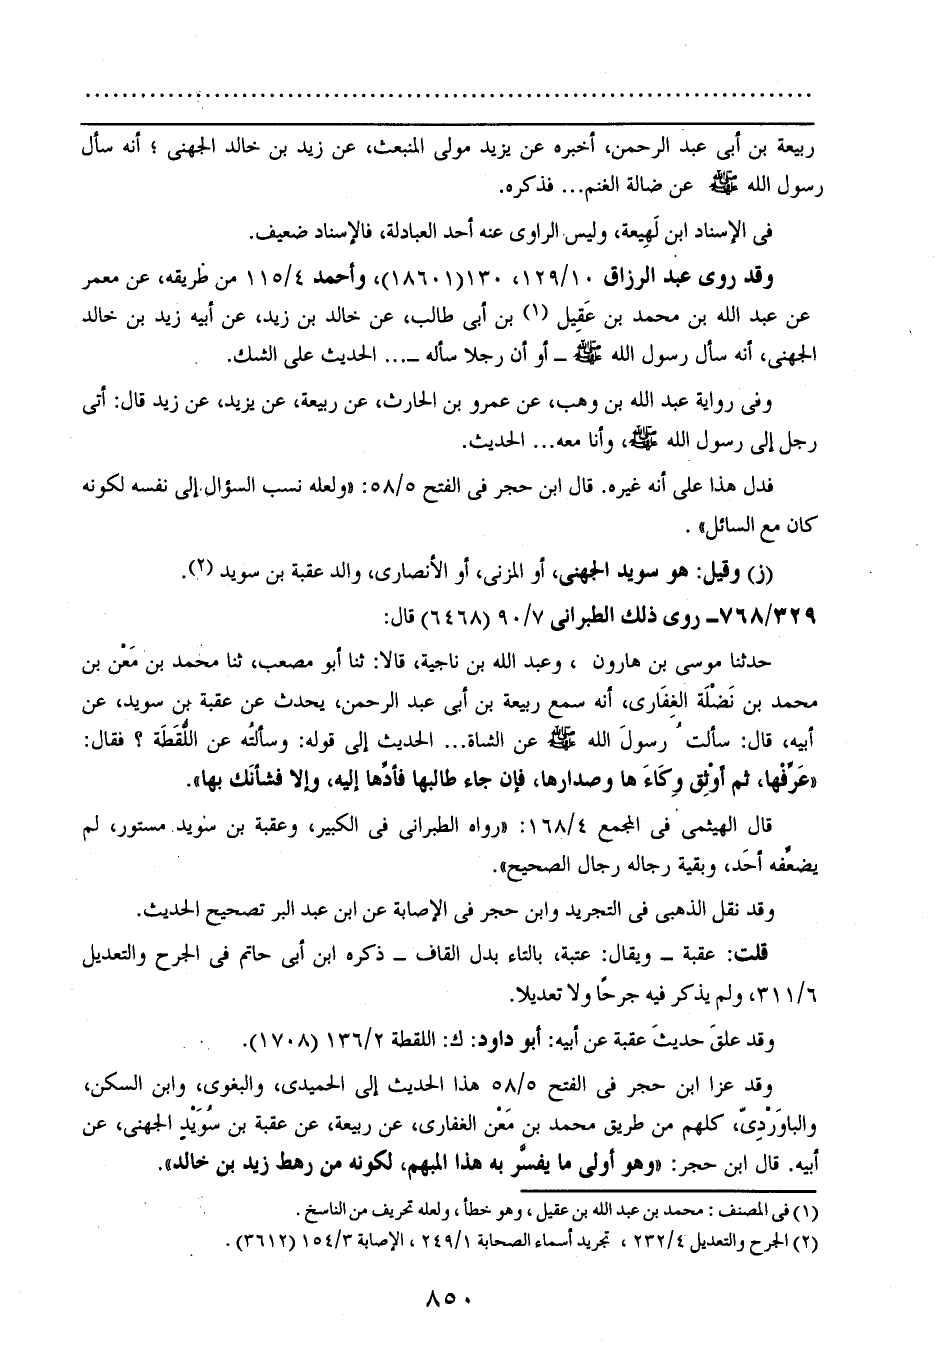 ربيعة بن أبى عبد الرحمن، أخبره عن يزيد مولى المنبعث، عن زيد بن خالد الجهنى ؛ أنه سأل
رسول الله ﷺ عن ضالة الغنم... فذكره.
فى الإسناد ابن لَهِيعة، وليس الراوى عنه أحد العبادلة، فالإسناد ضعيف.
وقد روى عبد الرزاق ١٢٩/١٠، ١٣٠(١٨٦٠١)، وأحمد ١١٥/٤ من طريقه، عن معمر
عن عبد الله بن محمد بن عَقِيل (١) بن أبى طالب، عن خالد بن زيد، عن أبيه زيد بن خالد
الجهنى، أنه سأل رسول الله ﷺ ــ أو أن رجلا سأله ــ... الحديث على الشك.
وفى رواية عبد الله بن وهب، عن عمرو بن الحارث، عن ربيعة، عن يزيد، عن زيد قال: أتى
رجل إلى رسول الله ﷺ، وأنا معه... الحديث.
فدل هذا على أنه غيره. قال ابن حجر فى الفتح ٥٨/٥: «ولعله نسب السؤال إلى نفسه لكونه
كان مع السائل» .
(ز) وقيل: هو سويد الجهنى، أو المزنى، أو الأنصارى، والد عقبة بن سويد (٢).
٧٦٨/٣٢٩ــ روى ذلك الطبرانى ٩٠/٧ (٦٤٦٨) قال:
حدثنا موسى بن هارون ، وعبد الله بن ناجية، قالا: ثنا أبو مصعب، ثنا محمد بن مَعْن بن
محمد بن نَضْلَة الغِفَارى، أنه سمع ربيعة بن أبى عبد الرحمن، يحدث عن عقبة بن سويد، عن
أبيه، قال: سألتُ رسولَ الله ﷺ عن الشاة... الحديث إلى قوله: وسألتُه عن اللُّقَطَة ؟ فقال:
«عَرِّفْها، ثم أوْثِق وِكَاءَ ها وصدارها، فإن جاء طالبها فأدِّها إليه، وإلا فشأنَك بها».
قال الهيثمى فى المجمع ١٦٨/٤: «رواه الطبرانى فى الكبير، وعقبة بن سويد مستور، لم
يضعِّفه أحَد، وبقية رجاله رجال الصحيح».
وقد نقل الذهبى فى التجريد وابن حجر فى الإصابة عن ابن عبد البر تصحيح الحديث.
قلت: عقبة ــ ويقال: عتبة، بالتاء بدل القاف ــ ذكره ابن أبى حاتم فى الجرح والتعديل
٣١١/٦، ولم يذكر فيه جرحًا ولا تعديلا.
وقد علقَ حديثَ عقبة عن أبيه: أبو داود: ك: اللقطة ١٣٦/٢ (١٧٠٨).
وقد عزا ابن حجر فى الفتح ٥٨/٥ هذا الحديث إلى الحميدى، والبغوى، وابن السكن،
والباوَرْدِىّ، كلهم من طريق محمد بن مَعْن الغفارى، عن ربيعة، عن عقبة بن سُوَيْدٍ الجهنى، عن
أبيه. قال ابن حجر: «وهو أولى ما يفسَّر به هذا المبهم، لكونه من رهط زيد بن خالد».
(١) فى المصنف : محمد بن عبد الله بن عقيل ، وهو خطأ ، ولعله تحريف من الناسخ .
(٢) الجرح والتعديل ٢٣٢/٤ ، تجريد أسماء الصحابة ٢٤٩/١ ، الإصابة ١٥٤/٣ (٣٦١٢) .
٨٥٠